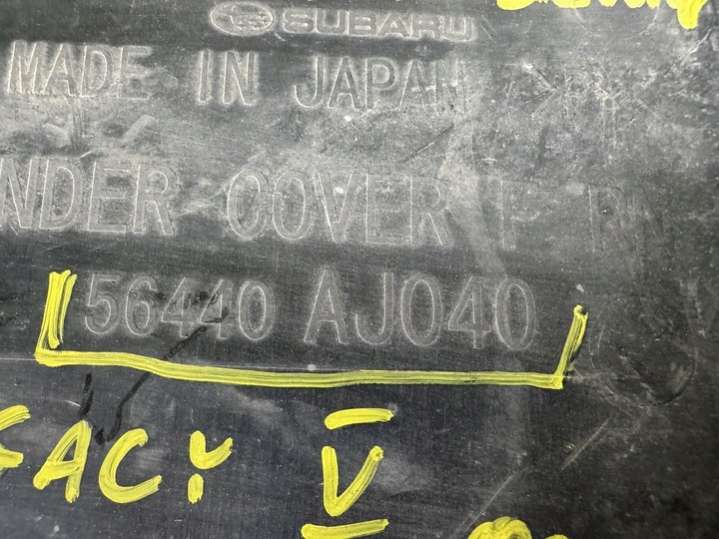 SUBARU
MADE IN JAPAN
NDER COVER F R
56440 AJ040
GACY V